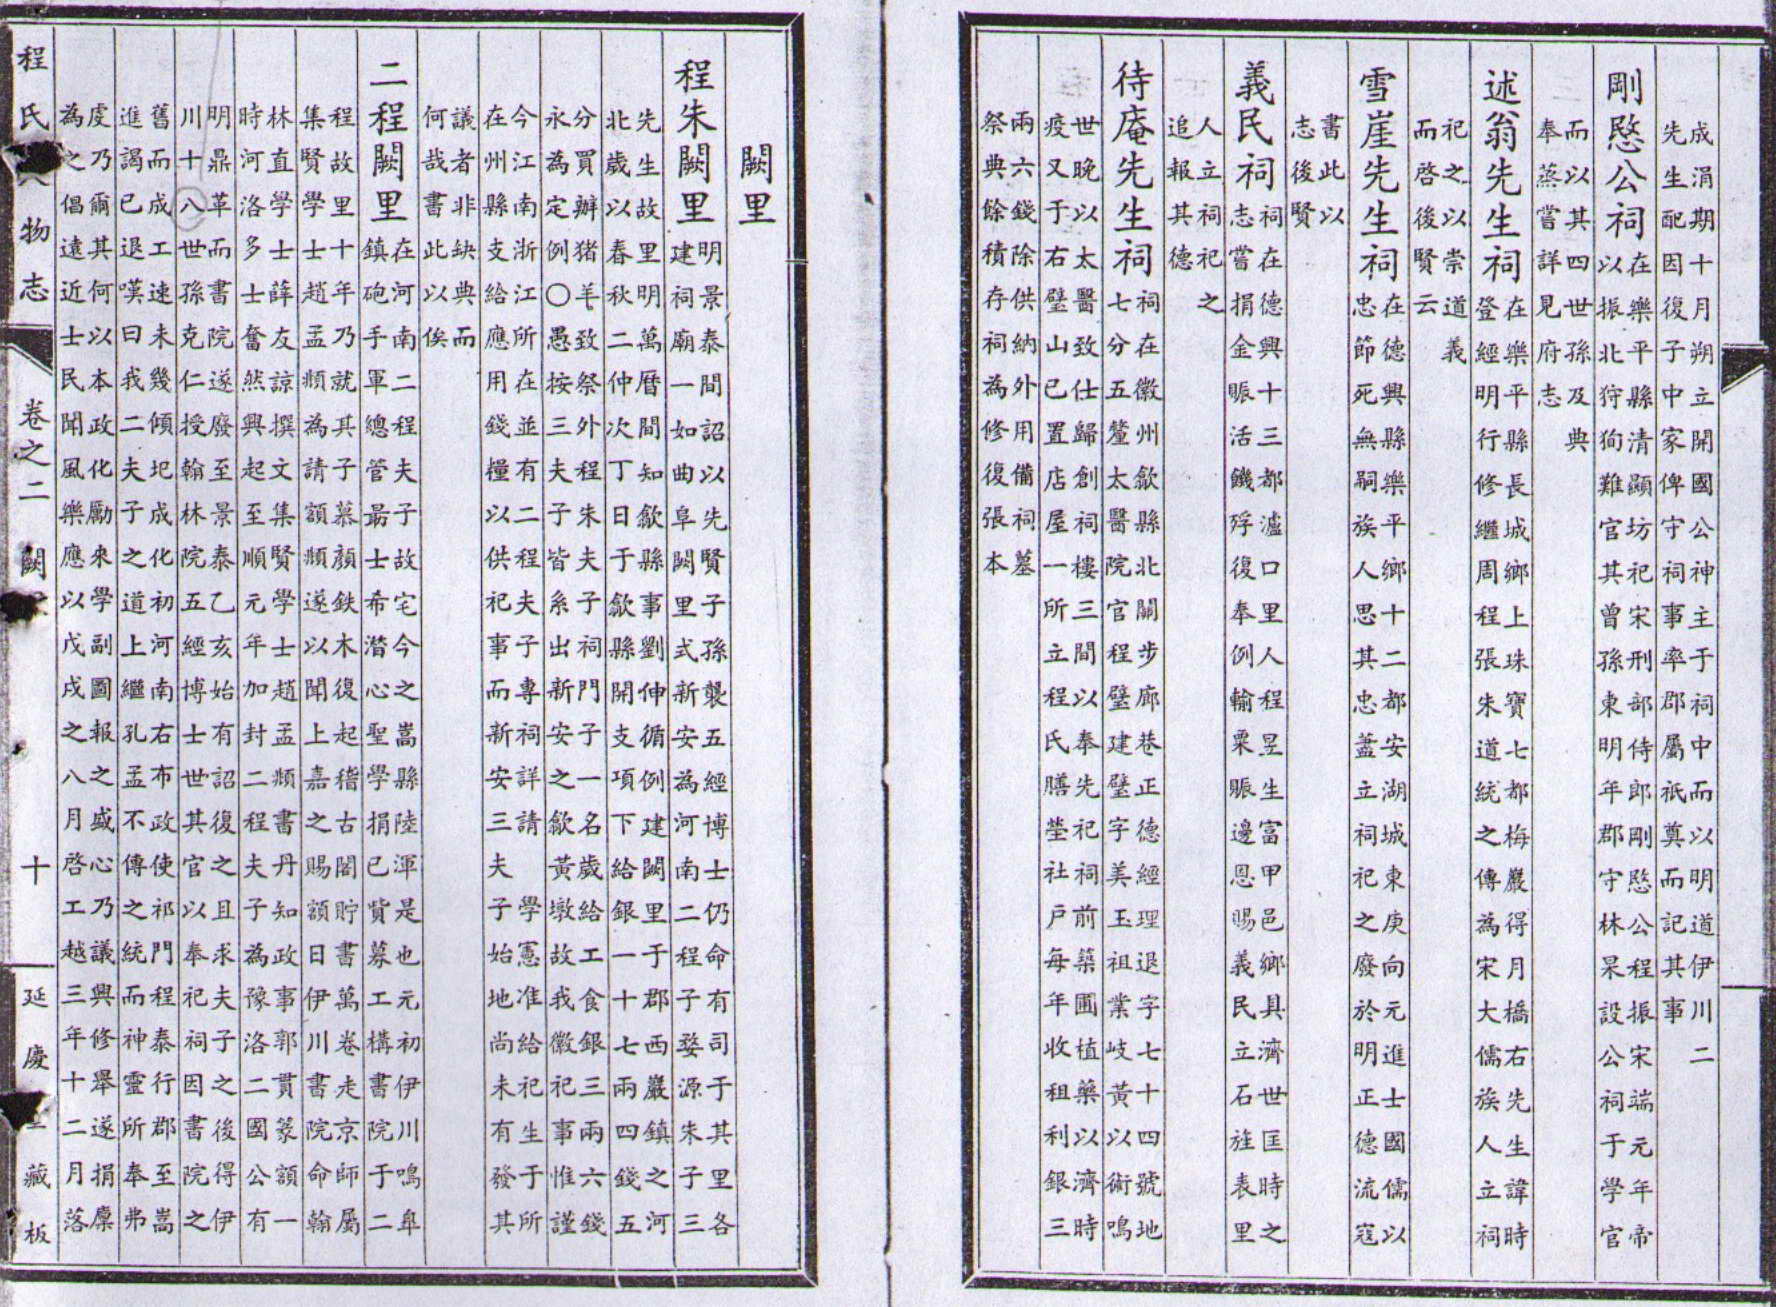 成涓期十月朔立開國公神主于祠中而以明道伊川二
先生配因復子中家俾守祠事率郡屬祇奠而記其事
剛愍公祠 在樂平縣清顯坊祀宋刑部侍郎剛愍公程振宋端元年帝
以振北狩狥難官其曾孫東明年郡守林杲設公祠于學官
而以其四世孫及典
奉蒸嘗詳見府志
述翁先生祠 在樂平縣長城鄉上珠寶七都梅巖得月橋右先生諱時
登經明行修繼周程張朱道統之傳為宋大儒族人立祠
祀之以崇道義
而啓後賢云
雪崖先生祠 在德興縣樂平鄉十二都安湖城東庚向元進士國儒以
忠節死無嗣族人思其忠蓋立祠祀之廢於明正德流寇
書此以
志後賢
義民祠 祠在德興十三都瀘口里人程昱生富甲邑鄉具濟世匡時之
志嘗捐金賑活饑殍復奉例輸粟賑邊恩賜義民立石旌表里
人立祠祀之
追報其德
待庵先生祠 祠在徽州歙縣北關步廊巷正德經理退字七十四號地
七分五釐太醫院官程璧建璧字美玉祖業岐黃以術鳴
世晚以太醫致仕歸創祠樓三間以奉先祀祠前築圃植藥以濟時
疫又于右璧山已置店屋一所立程氏膳塋社戶每年收租利銀三
兩六錢除供納外用備祠墓
祭典餘積存祠為修復張本
闕里
程朱闕里 明景泰間詔以先賢子孫襲五經博士仍命有司于其里各
建祠廟一如曲阜闕里式新安為河南二程子婺源朱子三
先生故里明萬曆間知歙縣事劉伸循例建闕里于郡西巖鎮之河
北歲以春秋二仲次丁日于歙縣開支項下給銀一十七兩四錢五
分買辦猪羊致祭外程朱夫子祠門子一名歲給工食銀三兩六錢
永為定例〇愚按三夫子皆系出新安之歙黃墩故我徽祀事惟謹
今江南浙江所在並有二程夫子專祠詳請 學憲准給祀生于所
在州縣支給應用錢糧以供祀事而新安三夫子始地尚未有發其
議者非缺典而
何哉書此以俟
二程闕里 在河南二程夫子故宅今之嵩縣陸渾是也元初伊川鳴皐
鎮砲手軍總管朂士希潛心聖學捐已貲募工構書院于二
程故里十年乃就其子慕顏鉄木復起稽古閣貯書萬卷走京師屬
集賢學士趙孟頫為請額頫遂以聞上嘉之賜額曰伊川書院命翰
林直學士薛友諒撰文集賢學士趙孟頫書丹知政事郭貫篆額一
時河洛多士奮然興起至順元年加封二程夫子為豫洛二國公有
明鼎革而書院遂廢至景泰乙亥始有詔復之且求夫子之後得伊
川十八世孫克仁授翰林院五經博士世其官以奉祀祠因書院之
舊而成工速未幾傾圯成化初河南右布政使祁門程泰行郡至嵩
進謁已退嘆曰我二夫子之道上繼孔孟不傳之統而神靈所奉弗
虔乃爾其何以本政化勵來學副圖報之盛心乃議興修舉遂捐廩
為之倡遠近士民聞風樂應以戊戌之八月啓工越三年十二月落
程氏人物志 卷之二 闕 十 延慶堂藏板